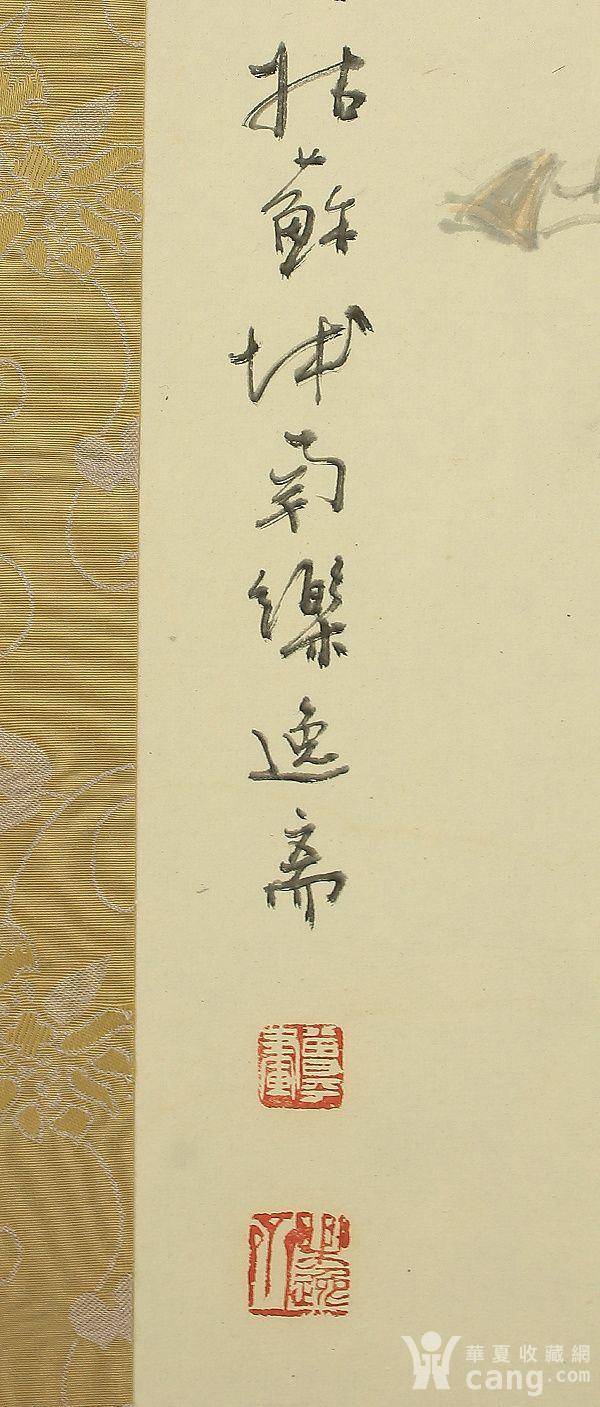 姑蘇城南樂逸斋
華夏收藏網
cang.com